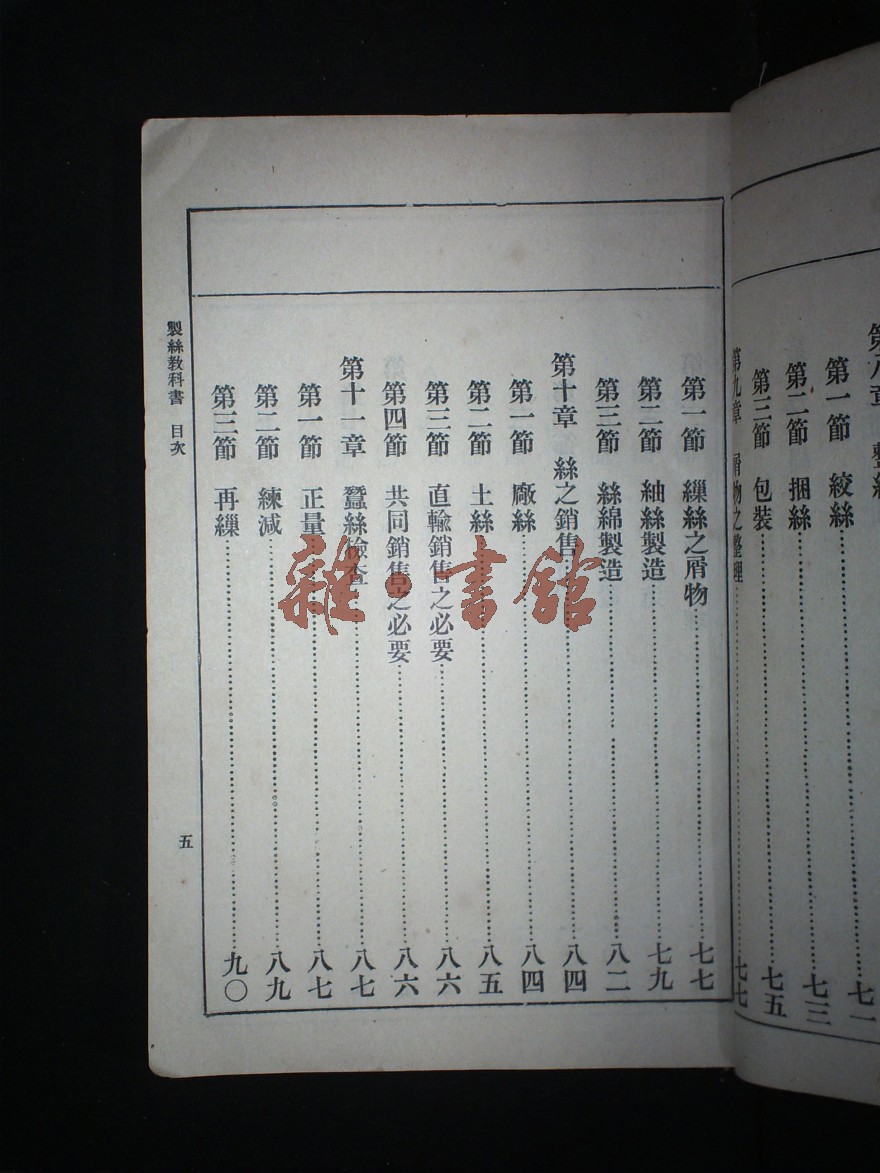 第一節 絞絲……七一
第二節 捆絲……七三
第三節 包裝……七五
第九章 屑物之整理……七七
第一節 繅絲之屑物……七七
第二節 紬絲製造……七九
第三節 絲綿製造……八二
第十章 絲之銷售……八四
第一節 廠絲……八四
第二節 土絲……八五
第三節 直輸銷售之必要……八六
第四節 共同銷售之必要……八六
第十一章 蠶絲檢查……八七
第一節 正量……八七
第二節 練減……八九
第三節 再繅……九〇
製絲教科書 目次
五
雜·書館